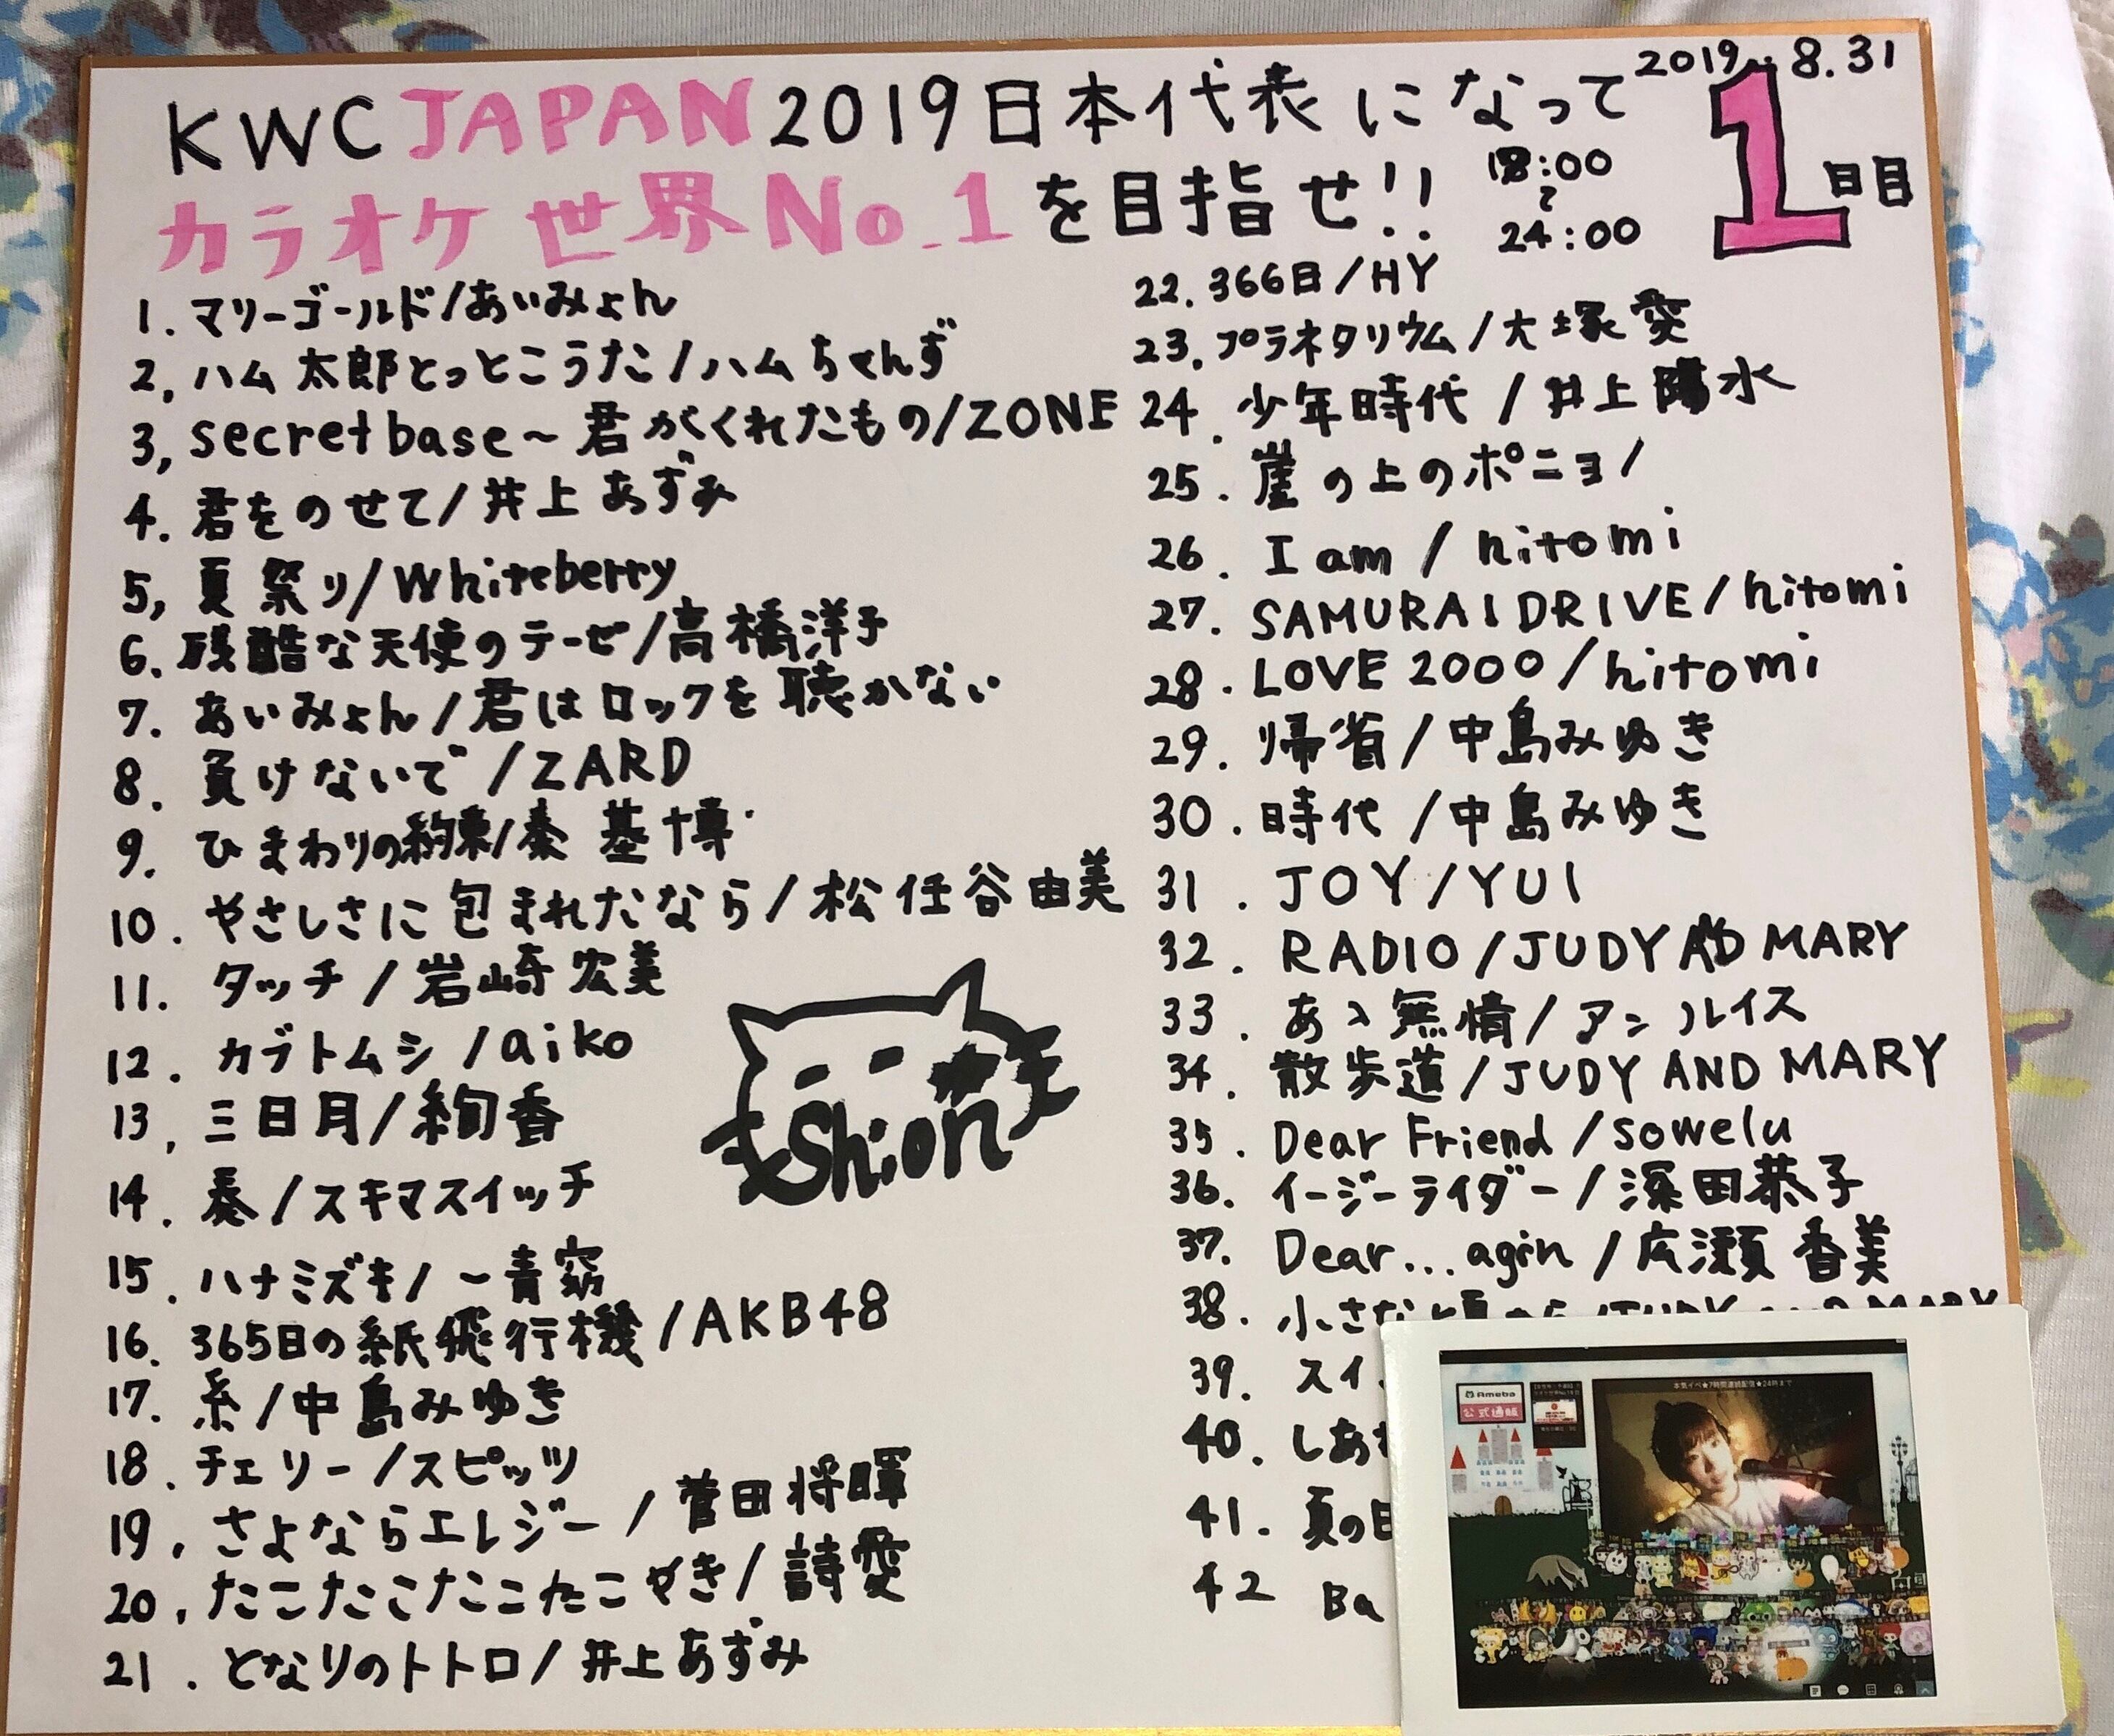 2019.8.31
KWC JAPAN 2019日本代表になって
1日目
カラオケ世界No.1を目指せ!!
18:00
〜
24:00
1. マリーゴールド/あいみょん
2, ハム太郎とっとこうた/ハムちゃんず
3, secret base～君がくれたもの/ZONE
4. 君をのせて/井上あずみ
5, 夏祭り/Whiteberry
6. 残酷な天使のテーゼ/高橋洋子
7. あいみょん/君はロックを聴かない
8. 負けないで/ZARD
9. ひまわりの約束/秦 基博
10. やさしさに包まれたなら/松任谷由美
11. タッチ/岩崎宏美
12. カブトムシ/aiko
13, 三日月/絢香
14. 奏/スキマスイッチ
15. ハナミズキ/一青窈
16. 365日の紙飛行機/AKB48
17. 糸/中島みゆき
18. チェリー/スピッツ
19, さよならエレジー/菅田将暉
20, たこたこたこたこやき/詩愛
21. となりのトトロ/井上あずみ
Shion
22. 366日/HY
23, プラネタリウム/大塚愛
24. 少年時代/井上陽水
25. 崖の上のポニョ/
26. I am/hitomi
27. SAMURAI DRIVE/hitomi
28. LOVE 2000/hitomi
29. 帰省/中島みゆき
30. 時代/中島みゆき
31. JOY/YUI
32. RADIO/JUDY AND MARY
33. あゝ無情/アンルイス
34. 散歩道/JUDY AND MARY
35. Dear Friend/sowelu
36. イージーライダー/深田恭子
37. Dear...agin/広瀬香美
38. 小さな頃から/JUDY AND MARY
39. スイ
40. しあ
41. 夏の日
42 Ba
Ameba
公式通販
本気イベ★7時間連続配信★24時まで